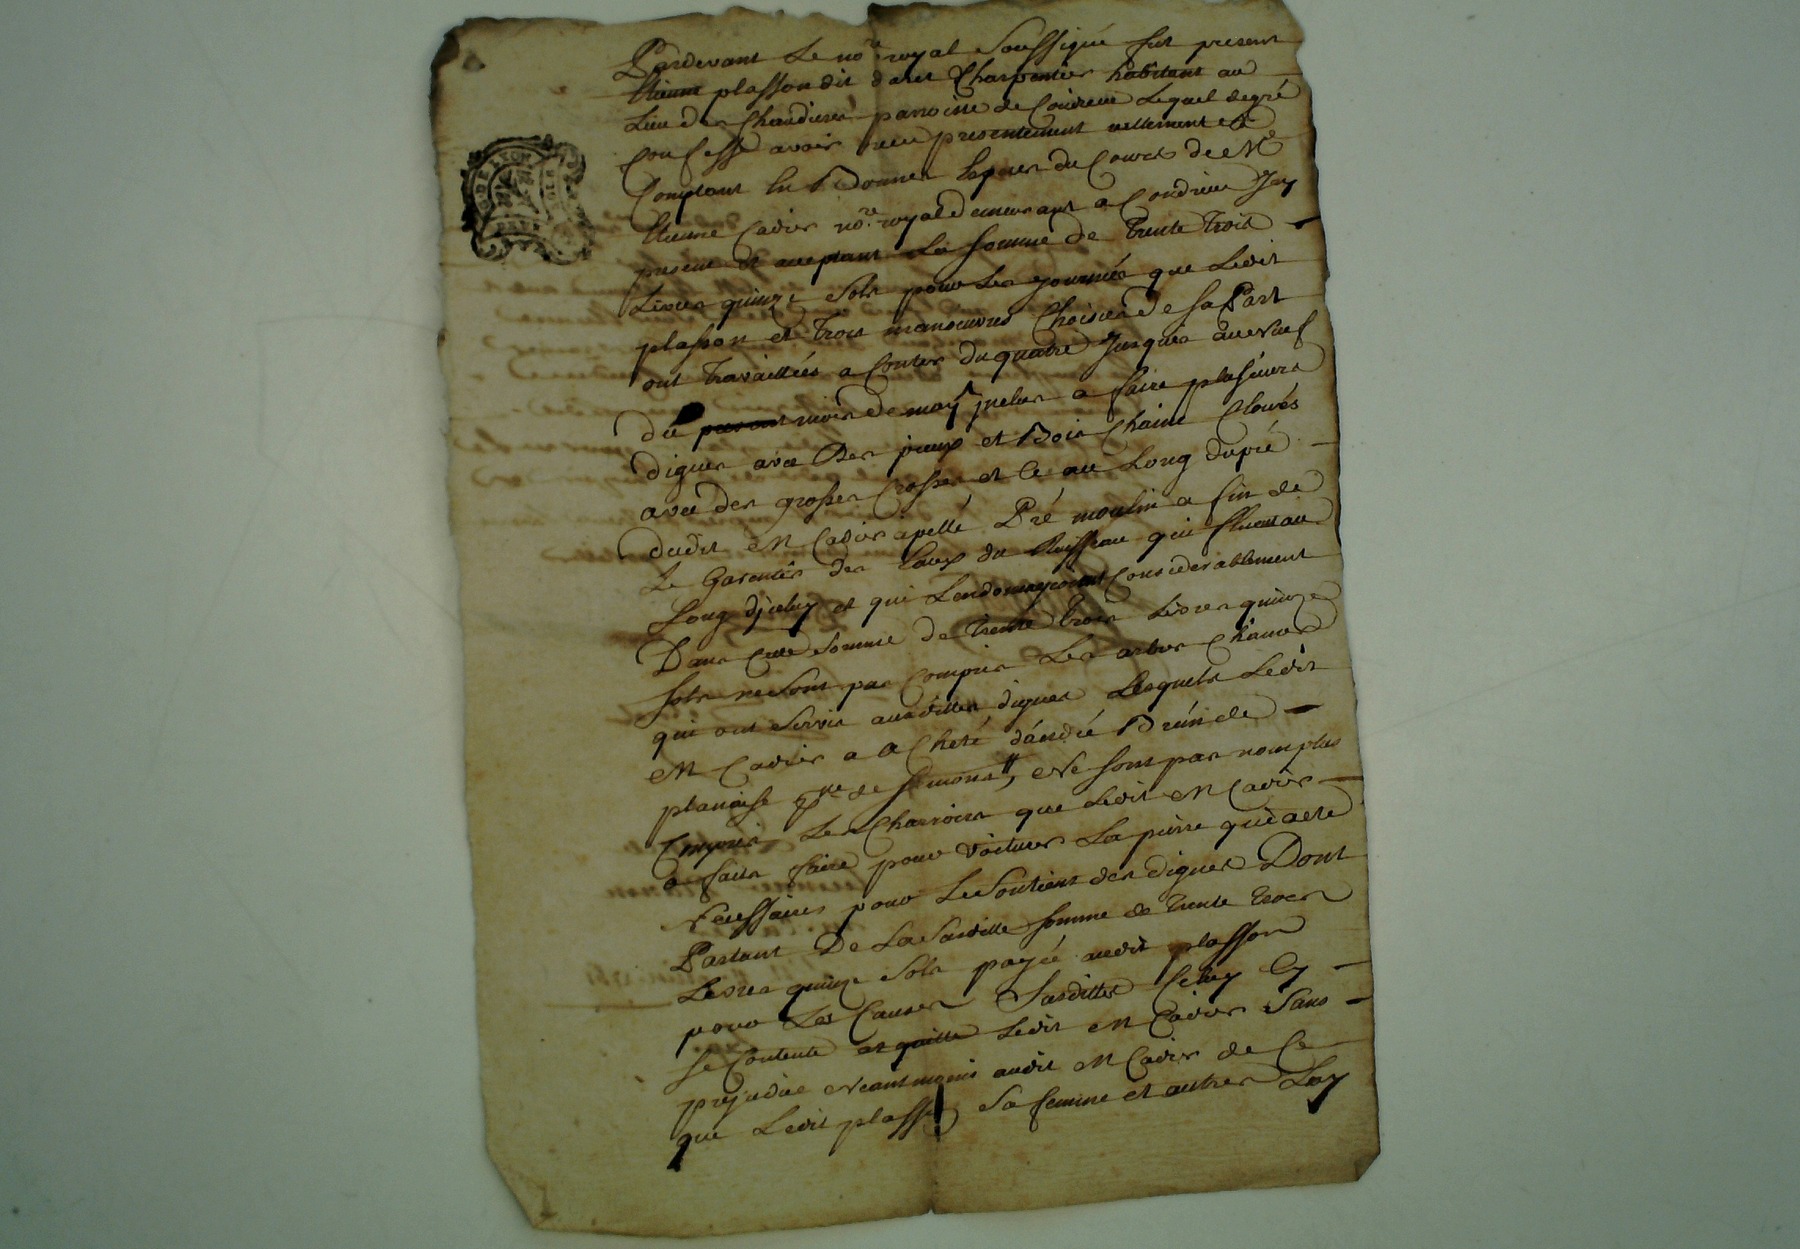 Pardevant le no.re royal soussigné fut present
Etienne plasson dit daret Charpentier habitant au
Lieu des Chaudieres parroisse de Condrieu Lequel de gré
Confesse avoir receu presentement reellement et
Comptant en Bonnes Especes du Cours de Me
Etienne Cadier no.re royal demeurant a Condrieu Icy
present et acceptant La somme de Trente Trois
Livres quinze sols pour Les journées que Ledit
plasson et Trois manoeuvres Choisies de sa Part
ont Travaillées a Conter du quatre Jusques au neuf
du mois de may a faire plusieurs
digues avec Des pieux et Bois Chaine Cloués
avec des grosses Crosses et Ce au Long du pré
dudit M Cadier apellé Pré moulin a fin de
Le Garentir des Eaux du Ruisseau qui fluent au
Long d'jceluy et qui L'endomageoient Considerablement
Dans Cette Somme de Trente trois Livres quinze
sols ne sont pas Compris Les arbres Chaines
qui ont servis ausdittes digues Lesquels Ledit
M Cadier a acheté d'andré Brun de
planaise de Simons, Ne sont pas nomplus
Compris Les Charrois que Ledit M Cadier
a faits faire pour voiturer La pierre qui a eté
Necessaires pour Le Soutient des digues Dont
Partant De La Susditte somme de Trente trois
Livres quinze sols payée audit plasson
pour Les Causes Susdittes Celuy Cy
se Contente et quitte Ledit M Cadier Sans
prejudice Neantmoins audit M Cadier de Ce
que Ledit plasson, sa femme et autres Luy